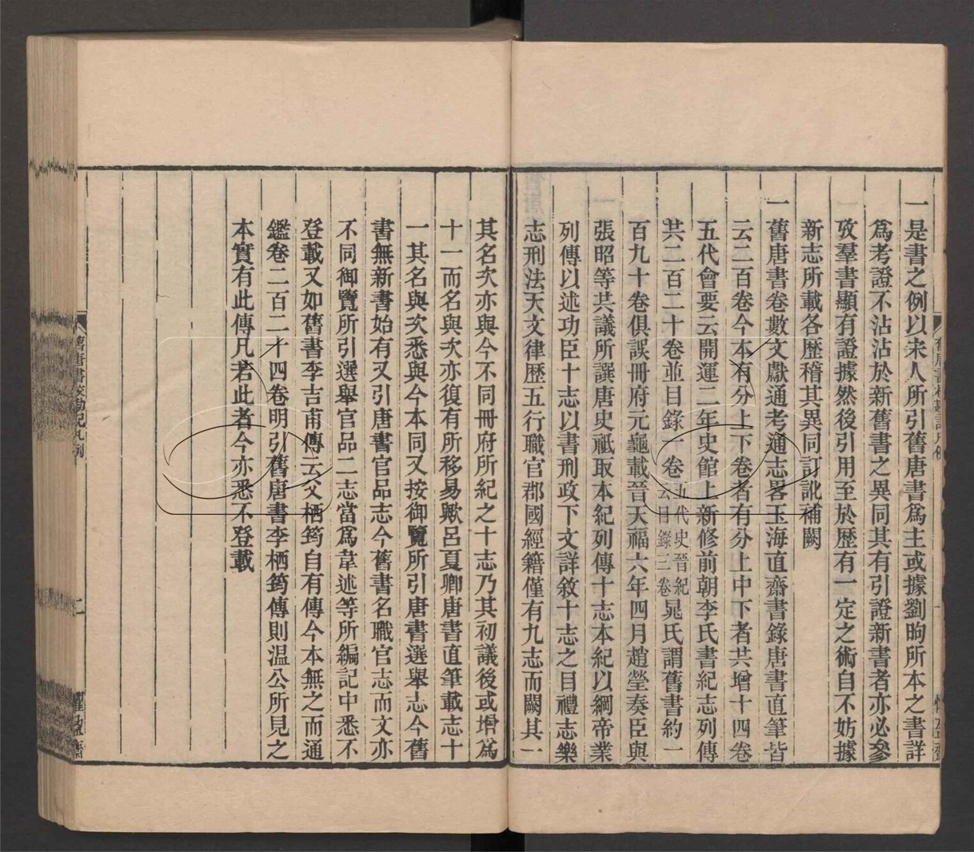 一是書之例以宋人所引舊唐書爲主或據劉昫所本之書詳
爲考證不沾沾於新舊書之異同其有引證新書者亦必參
攷羣書顯有證據然後引用至於歷有一定之術自不妨據
新志所載各歷稽其異同訂訛補闕
一舊唐書卷數文獻通考通志畧玉海直齋書錄唐書直筆皆
云二百卷今本有分上下卷者有分上中下者共增十四卷
五代會要云開運二年史館上新修前朝李氏書紀志列傳
共二百二十卷並目錄一卷五代史晉紀云目錄二卷晁氏謂舊書約一
百九十卷俱誤冊府元龜載晉天福六年四月趙瑩奏臣與
張昭等共議所譔唐史祗取本紀列傳十志本紀以綱帝業
列傳以述功臣十志以書刑政下文詳敘十志之目禮志樂
志刑法天文律歷五行職官郡國經籍僅有九志而闕其一
其名次亦與今不同冊府所紀之十志乃其初議後或增爲
十一而名與次亦復有所移易歟呂夏卿唐書直筆載志十
一其名與次悉與今本同又按御覽所引唐書選舉志今舊
書無新書始有又引唐書官品志今舊書名職官志而文亦
不同御覽所引選舉官品二志當爲韋述等所編記中悉不
登載又如舊書李吉甫傳云父栖筠自有傳今本無之而通
鑑卷二百二十四卷明引舊唐書李栖筠傳則温公所見之
本實有此傳凡若此者今亦悉不登載
舊唐書校勘記凡例
二
懼盈齋